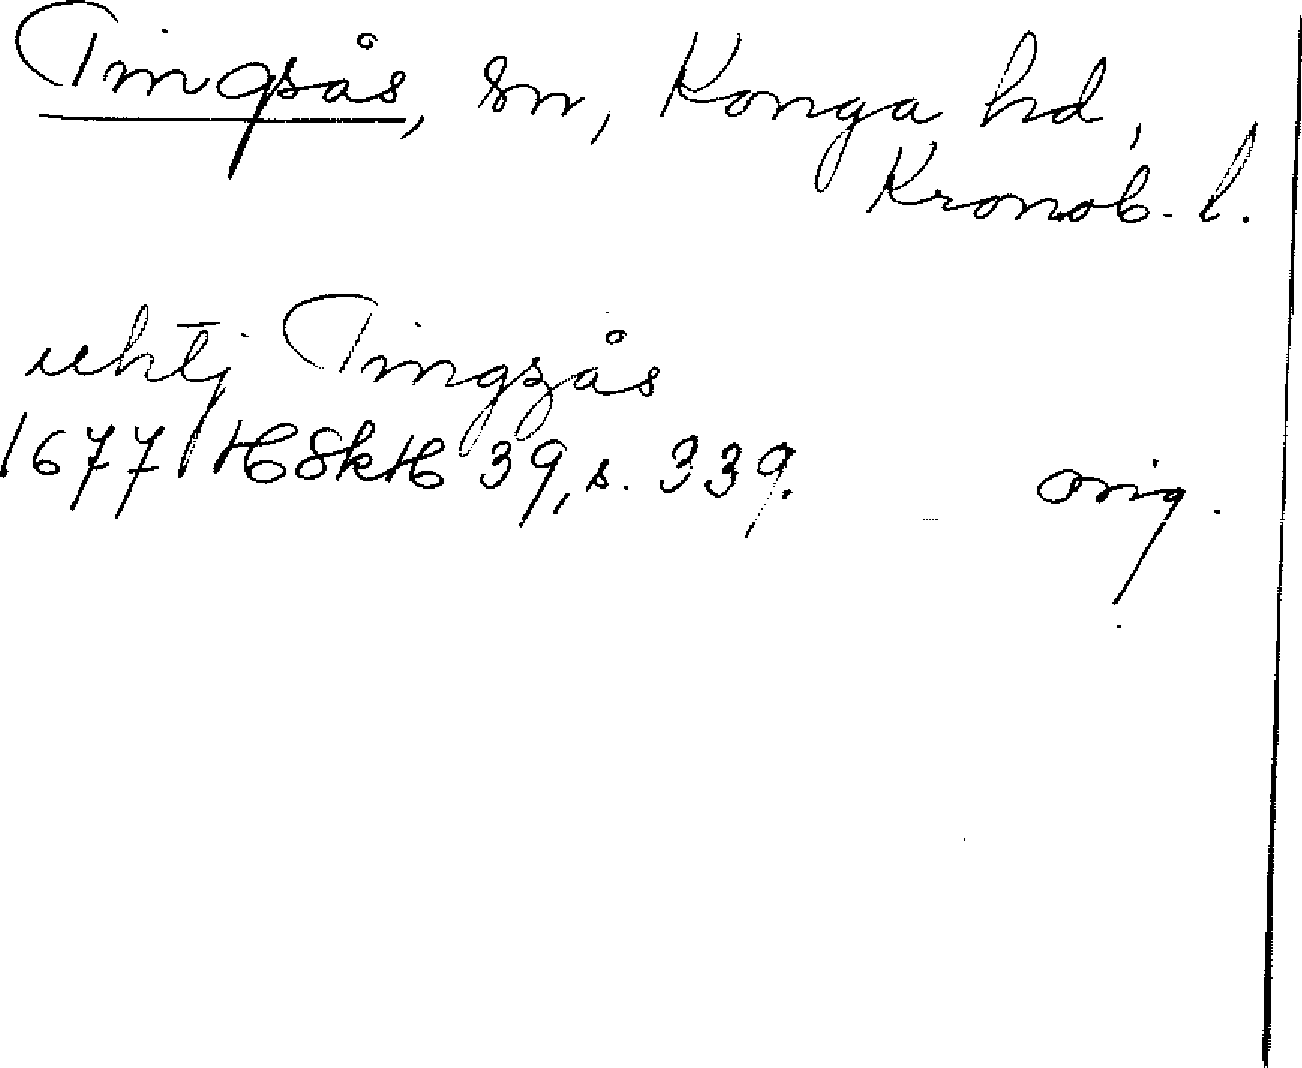 Tingsås, sn, Konga hd,
Kronob. l.
uhtj Tingzås
1677 HSkH 39, s. 339. orig.